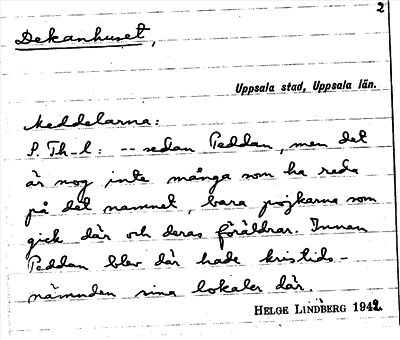 2
Dekanhuset,
Uppsala stad, Uppsala län.
Meddelarna:
P. Th-l: -- sedan Peddan, men det
är nog inte många som ha reda
på det namnet, bara pojkarna som
gick där och deras föräldrar. Innan
Peddan blev där hade kristids-
nämnden sina lokaler där.
HELGE LINDBERG 1942.